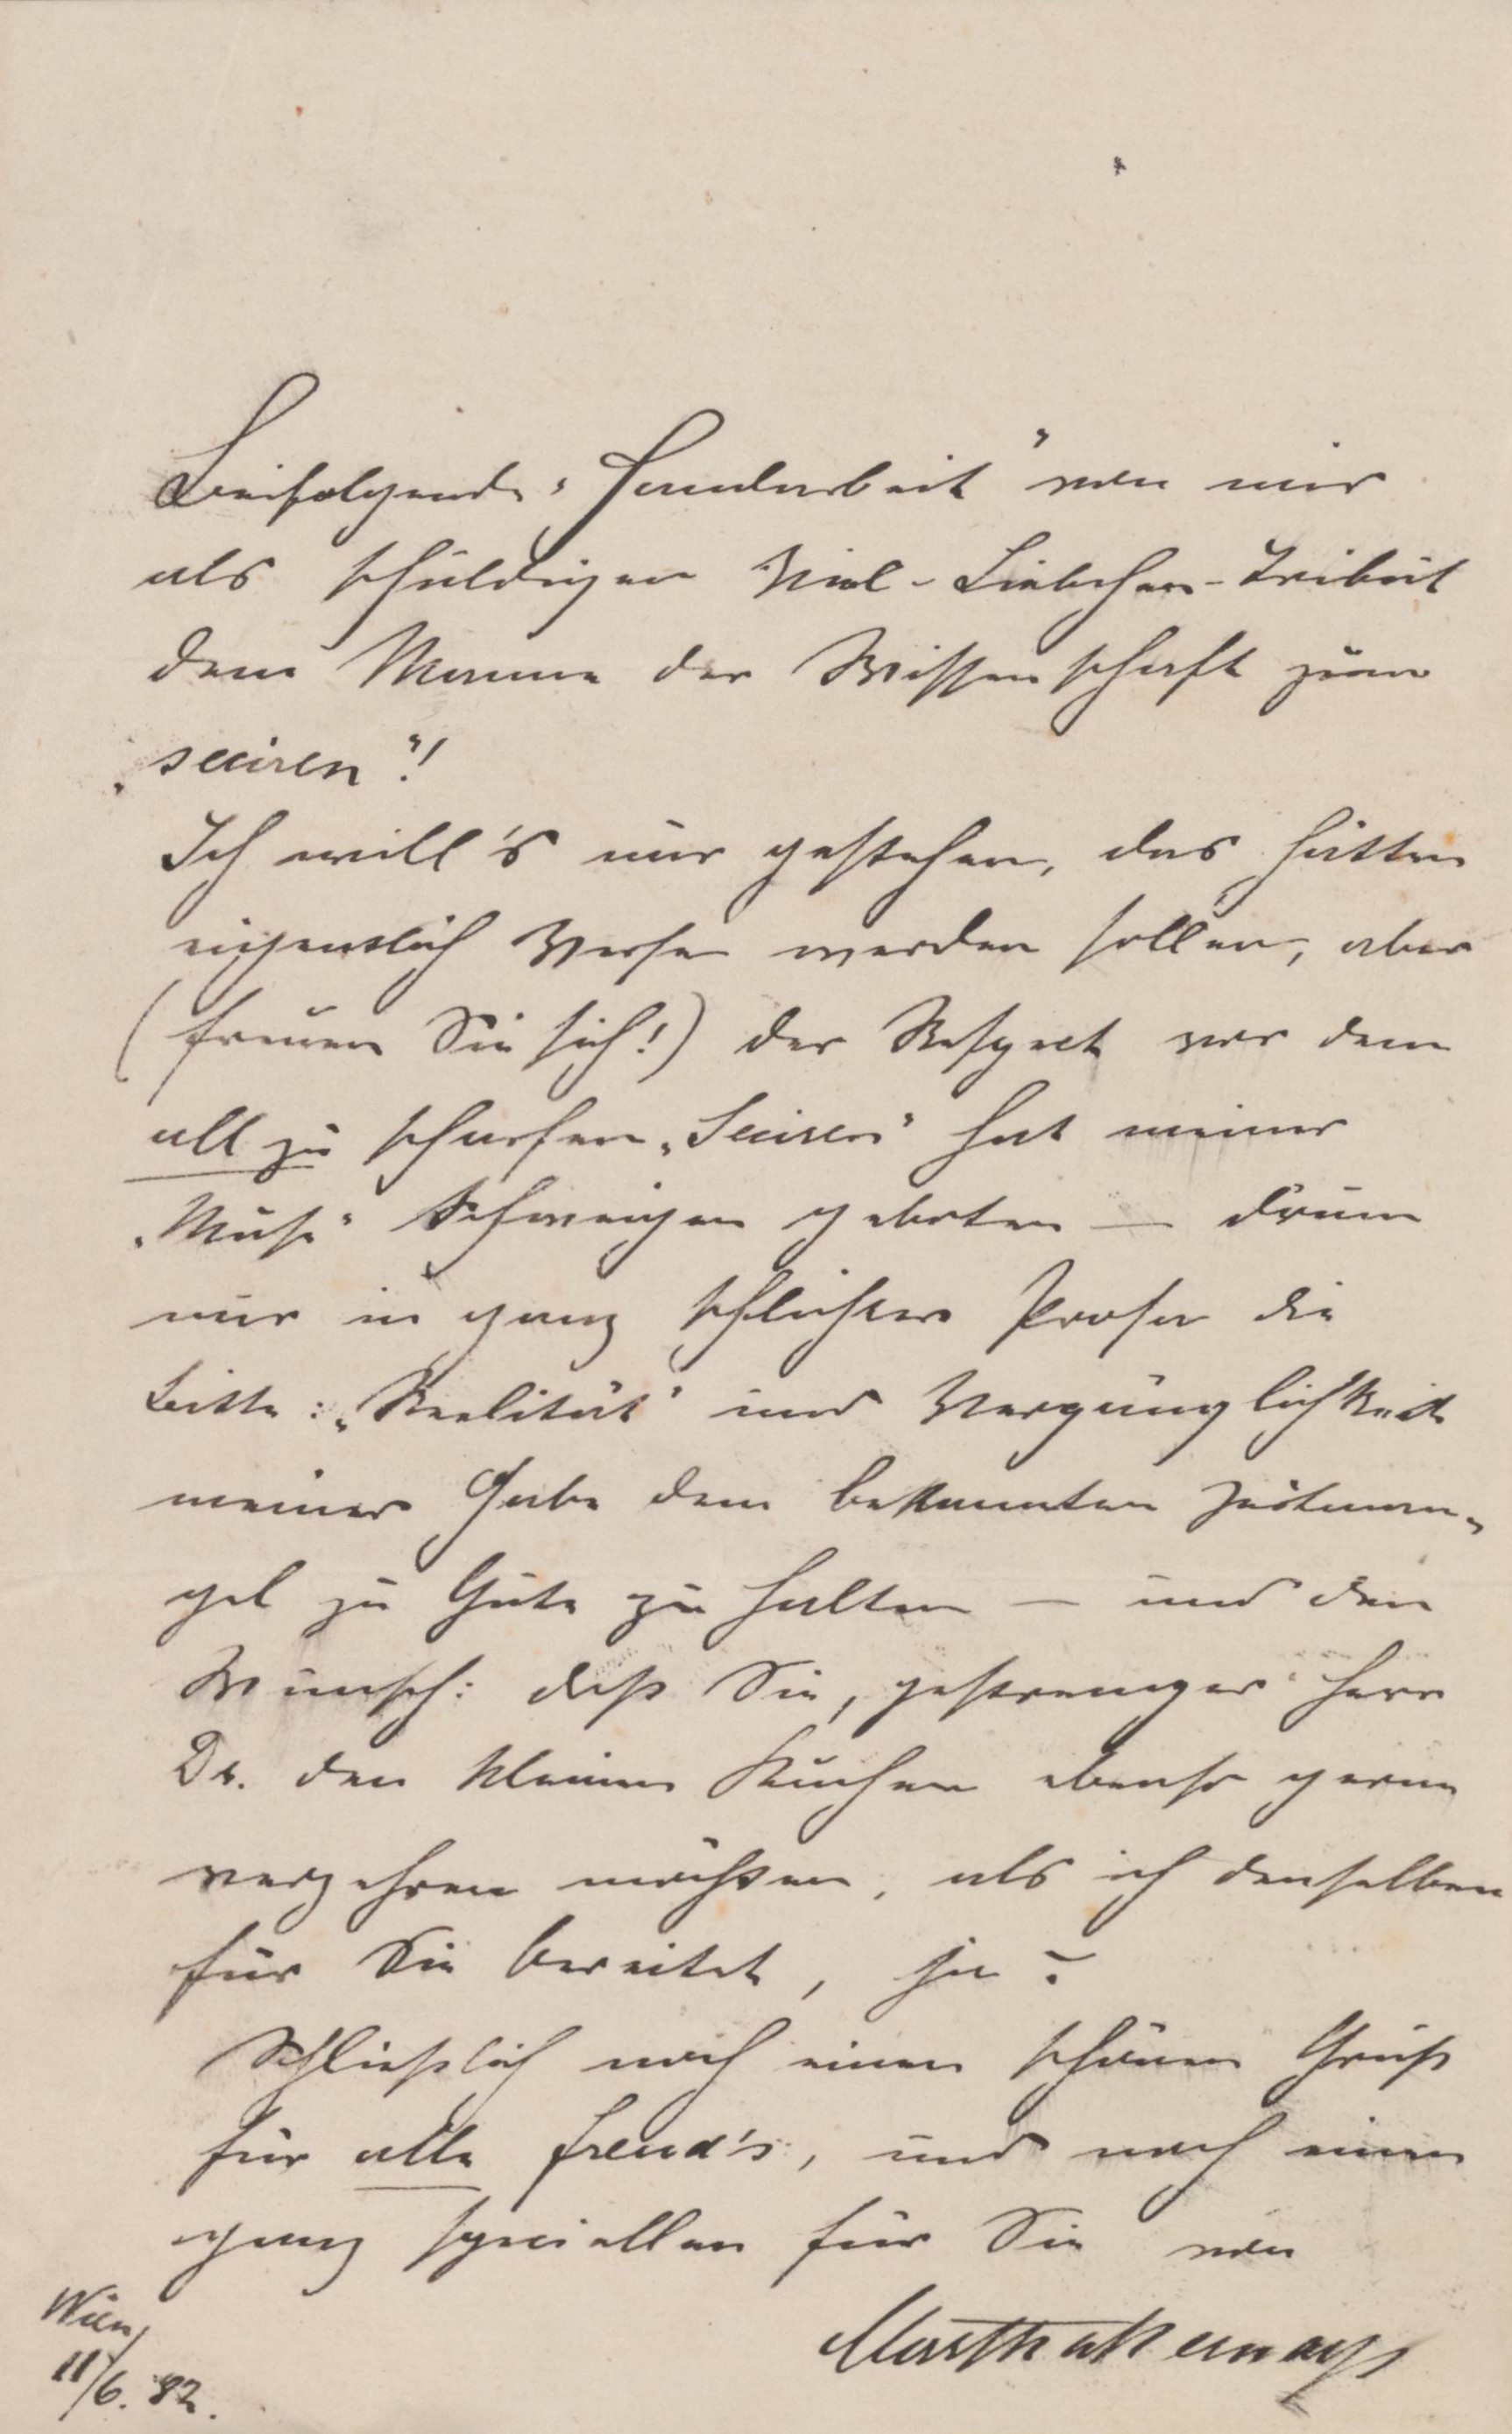 Beifolgende „Handarbeit" von mir
als schuldigen Viel-Liebchen-Tribut
dem Manne der Wissenschaft zum
„seciren"!
Ich will's nur gestehen, das hätten
eigentlich Verse werden sollen, aber
(freuen Sie sich!) der Respect vor dem
all zu scharfen „Seciren" hat meiner
„Muse" Schweigen geboten — drum
nur in ganz schlichter Prosa die
Bitte: „Realität" und Vergänglichkeit
meiner Gabe dem bekannten Zeitman-
gel zu Gute zu halten — und den
Wunsch: daß Sie, gestrenger Herr
Dr. den kleinen Kuchen ebenso gerne
verzehren möchten, als ich denselben
für Sie bereitet, ja?
Schließlich noch einen schönen Gruß
für alle Freud's, und noch einen
ganz speciellen für Sie von
Martha Bernays
Wien,
11/6. 82.